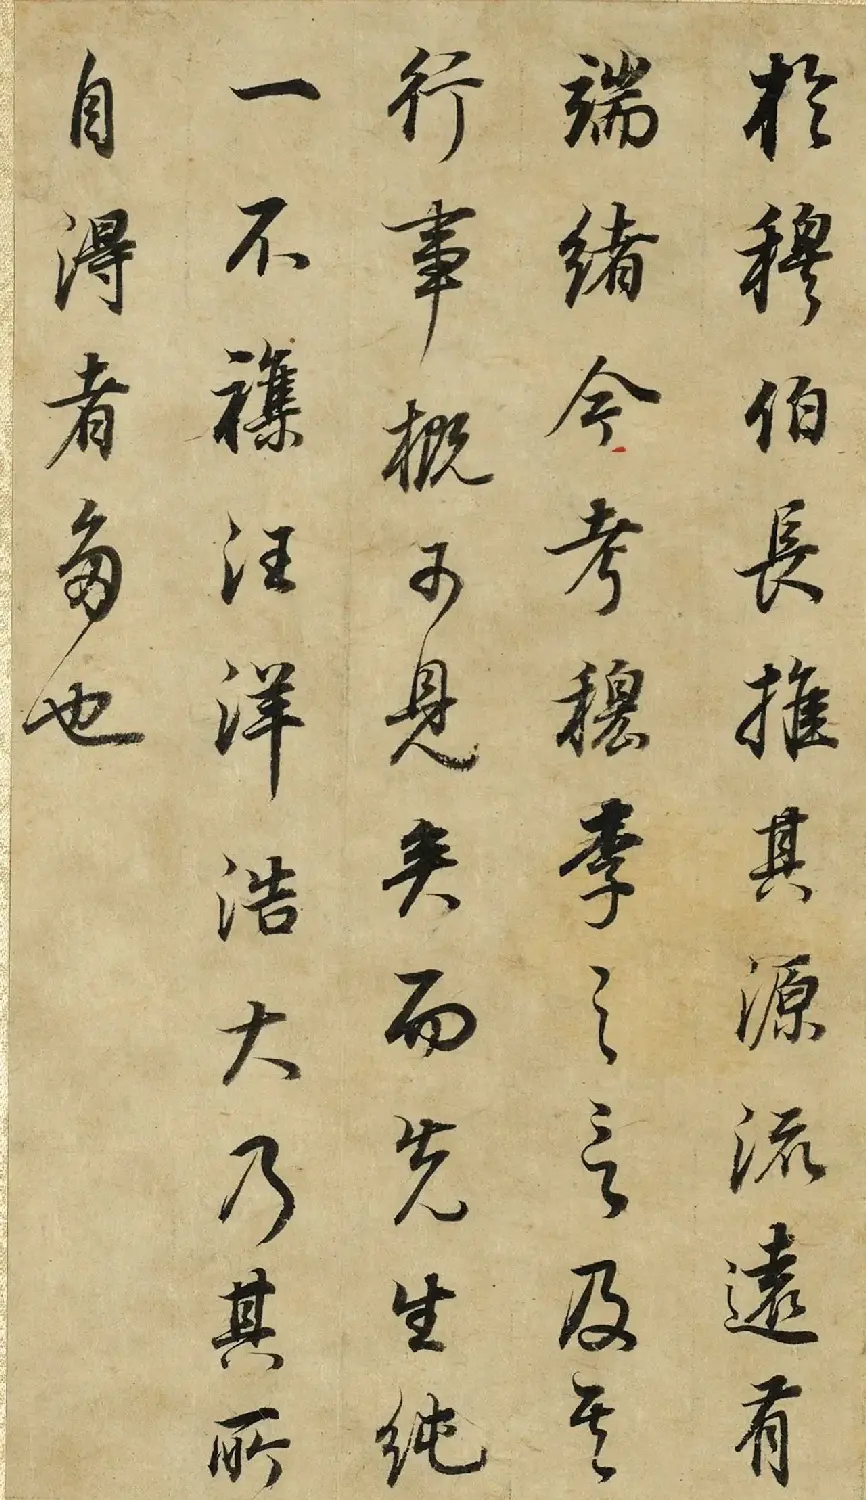 於穆伯長推其源流遠有
端緒今考穆李之言及其
行事概可見矣而先生純
一不雜汪洋浩大乃其所
自得者多也